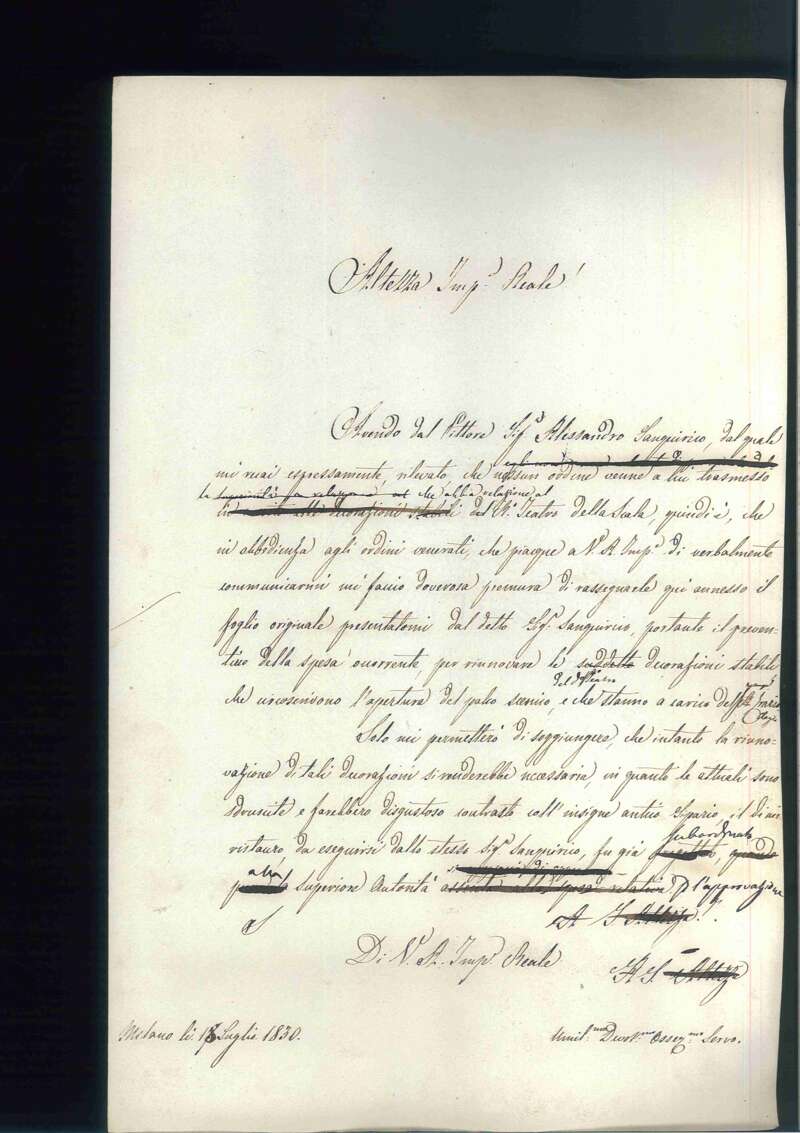 Altezza Imp.e Reale!
Avendo dal Pittore Sig.r Alessandro Sanquirico, dal quale
mi recai espressamente, rilevato, che nessun ordine venne a lui trasmesso
che abbia relazione al
in alle decorazioni stabili del R.o Teatro della Scala, quindi è, che
in obbedienza agli ordini venerati, che piacque a V. A. Imp.e di verbalmente
communicarmi mi faccio doverosa premura di rassegnarle quì annesso il
foglio originale presentatomi dal detto Sig.r Sanquirico, portante il preven-
tivo della spesa occorrente, per rinnovare le suddette decorazioni stabili
del Teatro
che circoscrivono l'apertura del palco scenico, e che stanno a carico
Solo mi permetterò di soggiungere, che intanto la rinno-
vazione di tali decorazioni si renderebbe necessaria, in quanto le attuali sono
sdruscite e farebbero disgustoso contrasto coll'insigne antico Sipario, il di cui
subordinato
ristauro, da eseguirsi dallo stesso Sig.r Sanquirico, fu già
alla
Superiore Autorità p l'approvazione
Di V. A. Imp.e Reale
Milano li 18 Luglio 1830.
Umil.mo Devot.mo Osseq.mo Servo.